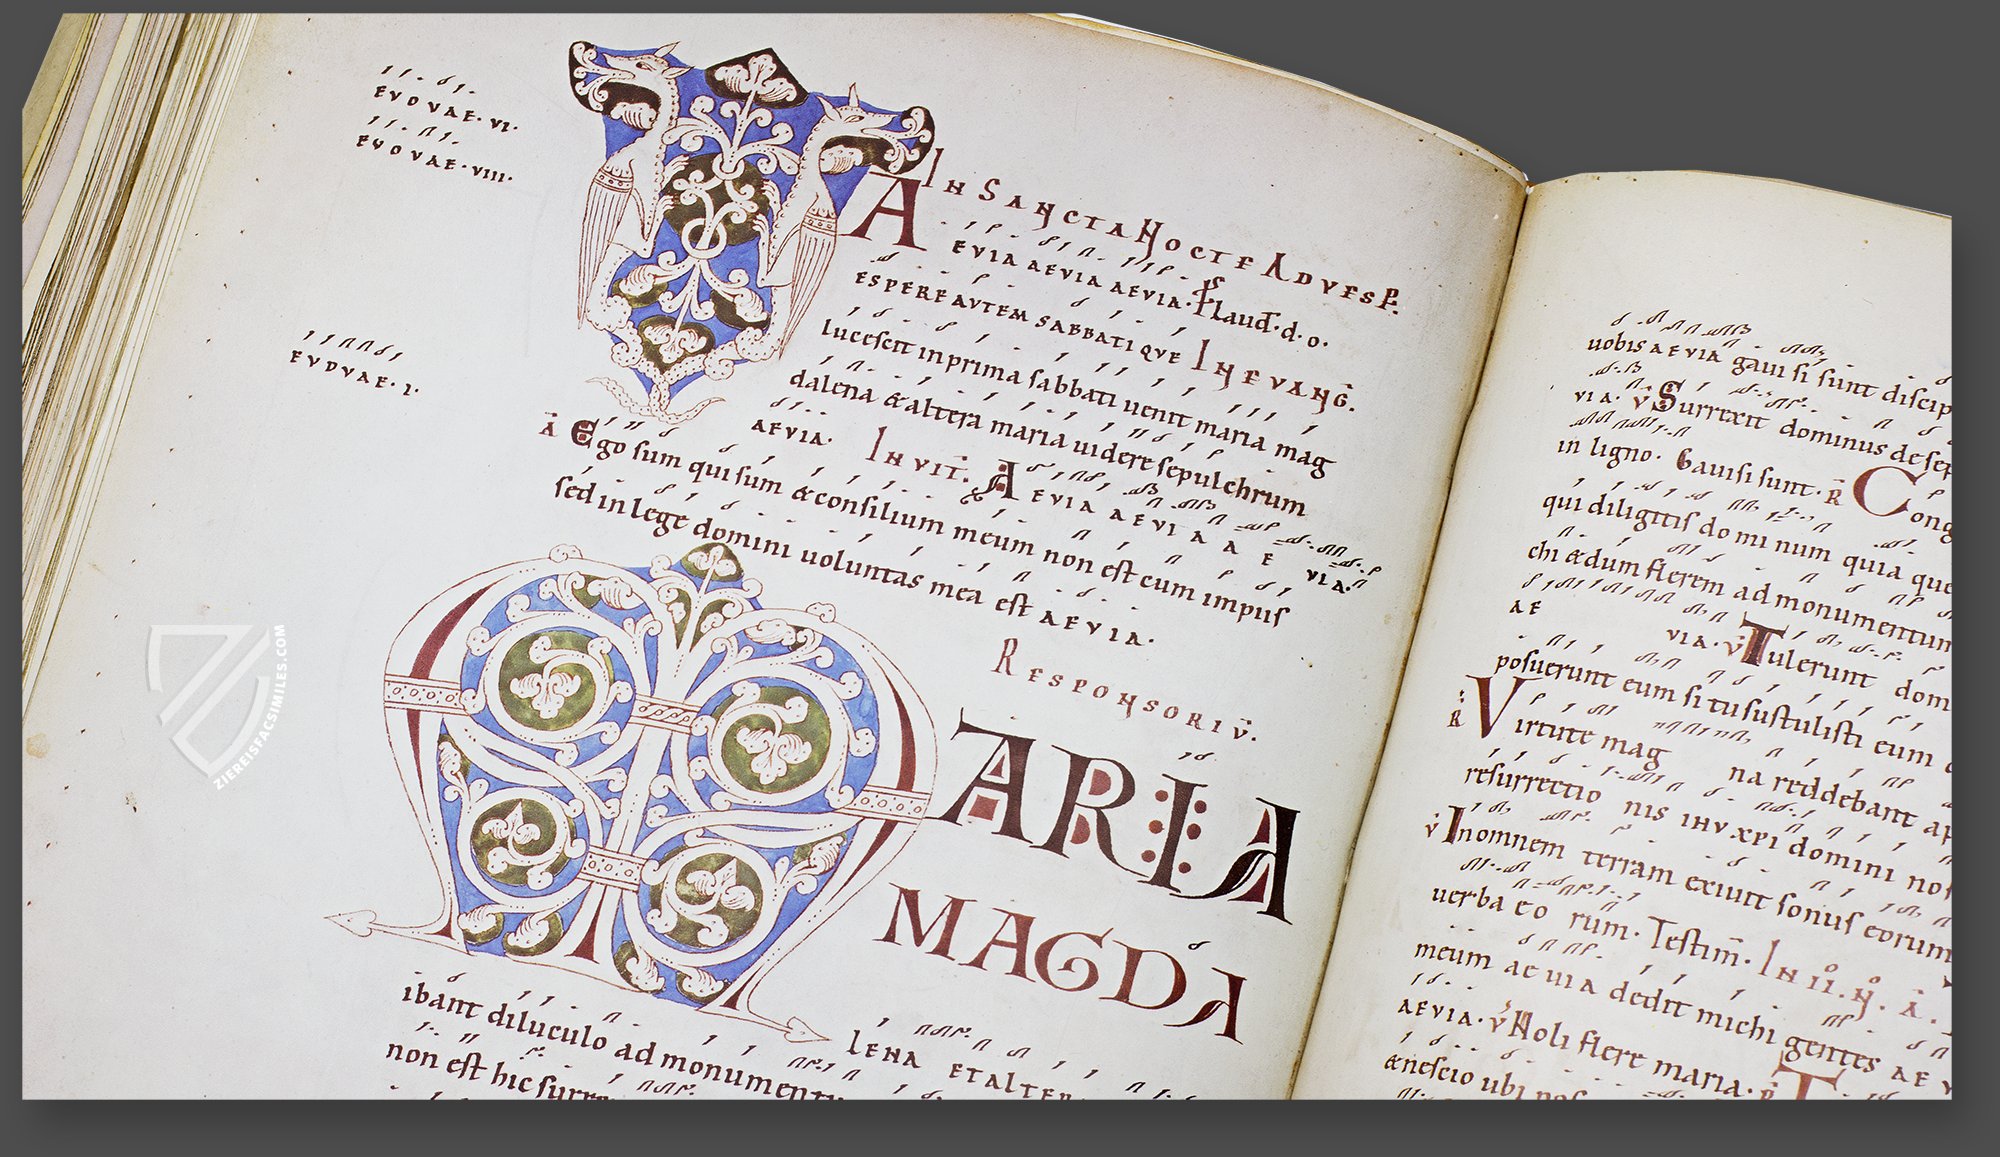 EVOVAE · VI ·
EVOVAE · VIII ·
IN SANCTA NOCTE AD VESP.
A EVIA AEVIA AEVIA · Laud · d · o ·
ESPERE AVTEM SABBATI QVE IN EVANG.
lucescit in prima sabbati uenit maria mag
dalena & altera maria uidere sepulchrum
AEVIA · INVIT. A EVIA AEVI A A E VIA ·
EVOVAE · I ·
A Ego sum qui sum & consilium meum non est cum impiis
sed in lege domini uoluntas mea est AEVIA ·
RESPONSORIV̄ ·
MARIA
MAGDA
LENA ET ALTER
ibant diluculo ad monument
non est hic surre
uobis AEVIA gaui si sunt discip
VIA · V Surrexit dominus de sep
in ligno · Gauisi sunt · R Cong
qui diligitis do mi num quia que
chi & dum flerem ad monumentum
AE VIA · V Tulerunt dom
posuerunt eum si tu sustulisti eum
R Virtute mag na reddebant ap
resurrectio nis IHV XPI domini nos
V In omnem terram exiuit sonus eorum
uerba eo rum · Testim̄ · IN II · N · A ·
meum ac ui a dedit michi gentes AE V
AEVIA · V Noli flere maria · R T
& nescio ubi pos
ZIEREISFACSIMILES.COM